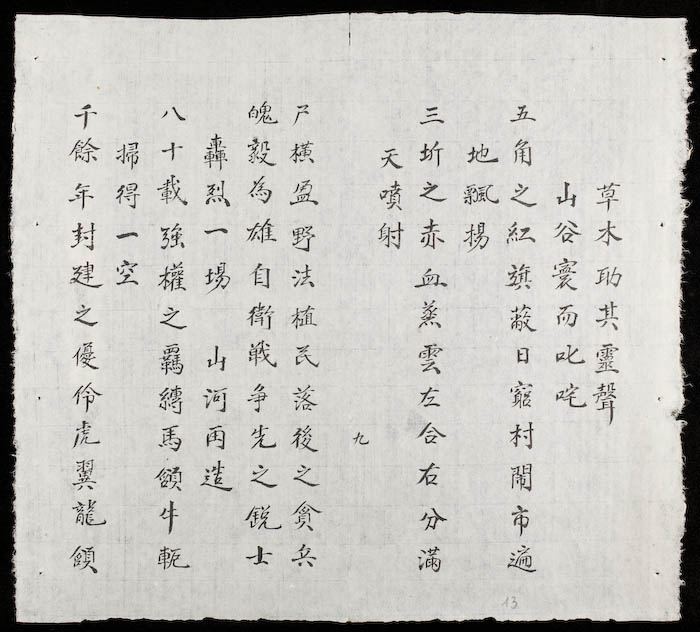 草木助其靈聲
山谷寰而叱咤
五角之紅旗蔽日窮村鬧市遍
地飄揚
三圻之赤血蒸雲左合右分滿
天噴射
九
尸橫盈野法植民落後之貪兵
魄毅為雄自衛戰爭先之銳士
轟烈一場 山河再造
八十載強權之羈縛馬頷牛軛
掃得一空
千餘年封建之優伶虎翼龍頷
13